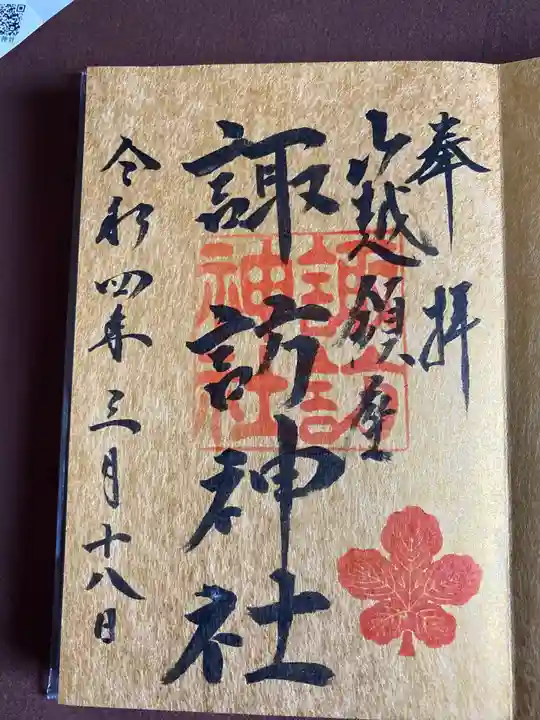 奉拝
越
諏訪神社
諏訪神社
令和四年三月十八日